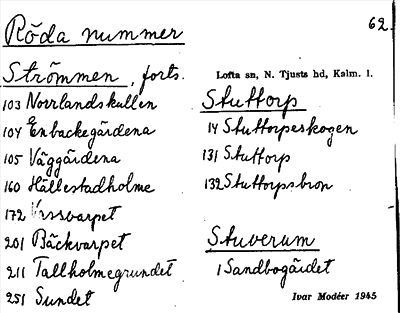 Röda nummer
62.
Strömmen, forts.
103 Norrlandskullen
104 Enbackegärdena
105 Väggärdena
160 Hällestadholme
172
201 Bäckvarpet
211 Tallholmegrundet
251 Sundet
Lofta sn, N. Tjusts hd, Kalm. l.
Stuttorp
14 Stuttorpeskogen
131 Stuttorp
132 Stuttorpsbron
Stuverum
1 Sandbogärdet
Ivar Modéer 1945